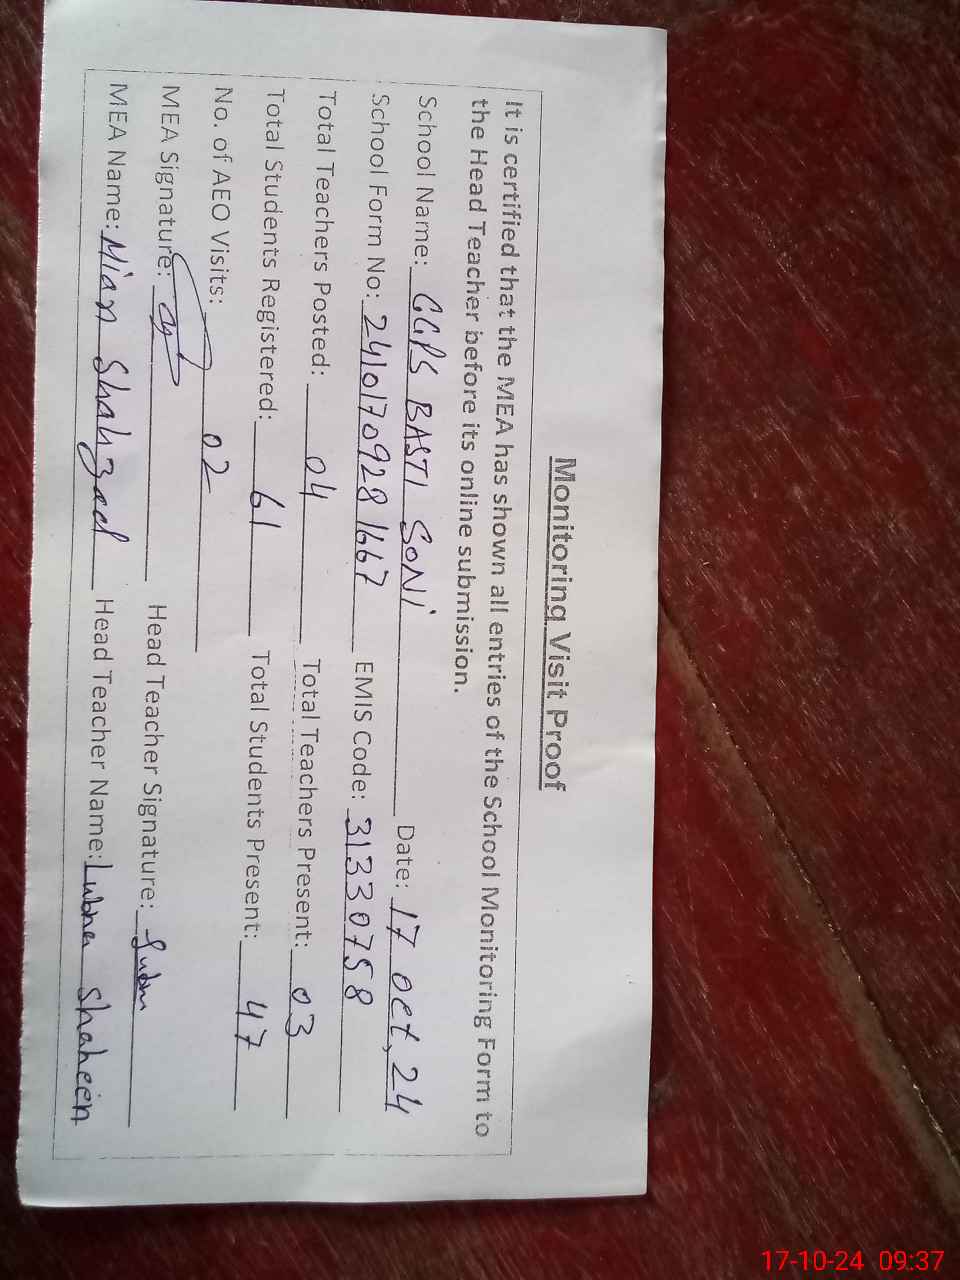 Monitoring Visit Proof
It is certified that the MEA has shown all entries of the School Monitoring Form to
the Head Teacher before its online submission.
School Name: GGPS BASTI SONI Date: 17 Oct, 24
School Form No: 24101709281667 EMIS Code: 31330758
Total Teachers Posted: 04 Total Teachers Present: 03
Total Students Registered: 61 Total Students Present: 47
No. of AEO Visits: 02
MEA Signature: Head Teacher Signature: Lubna
MEA Name: Mian Shahzad Head Teacher Name: Lubna Shaheen
17-10-24 09:37